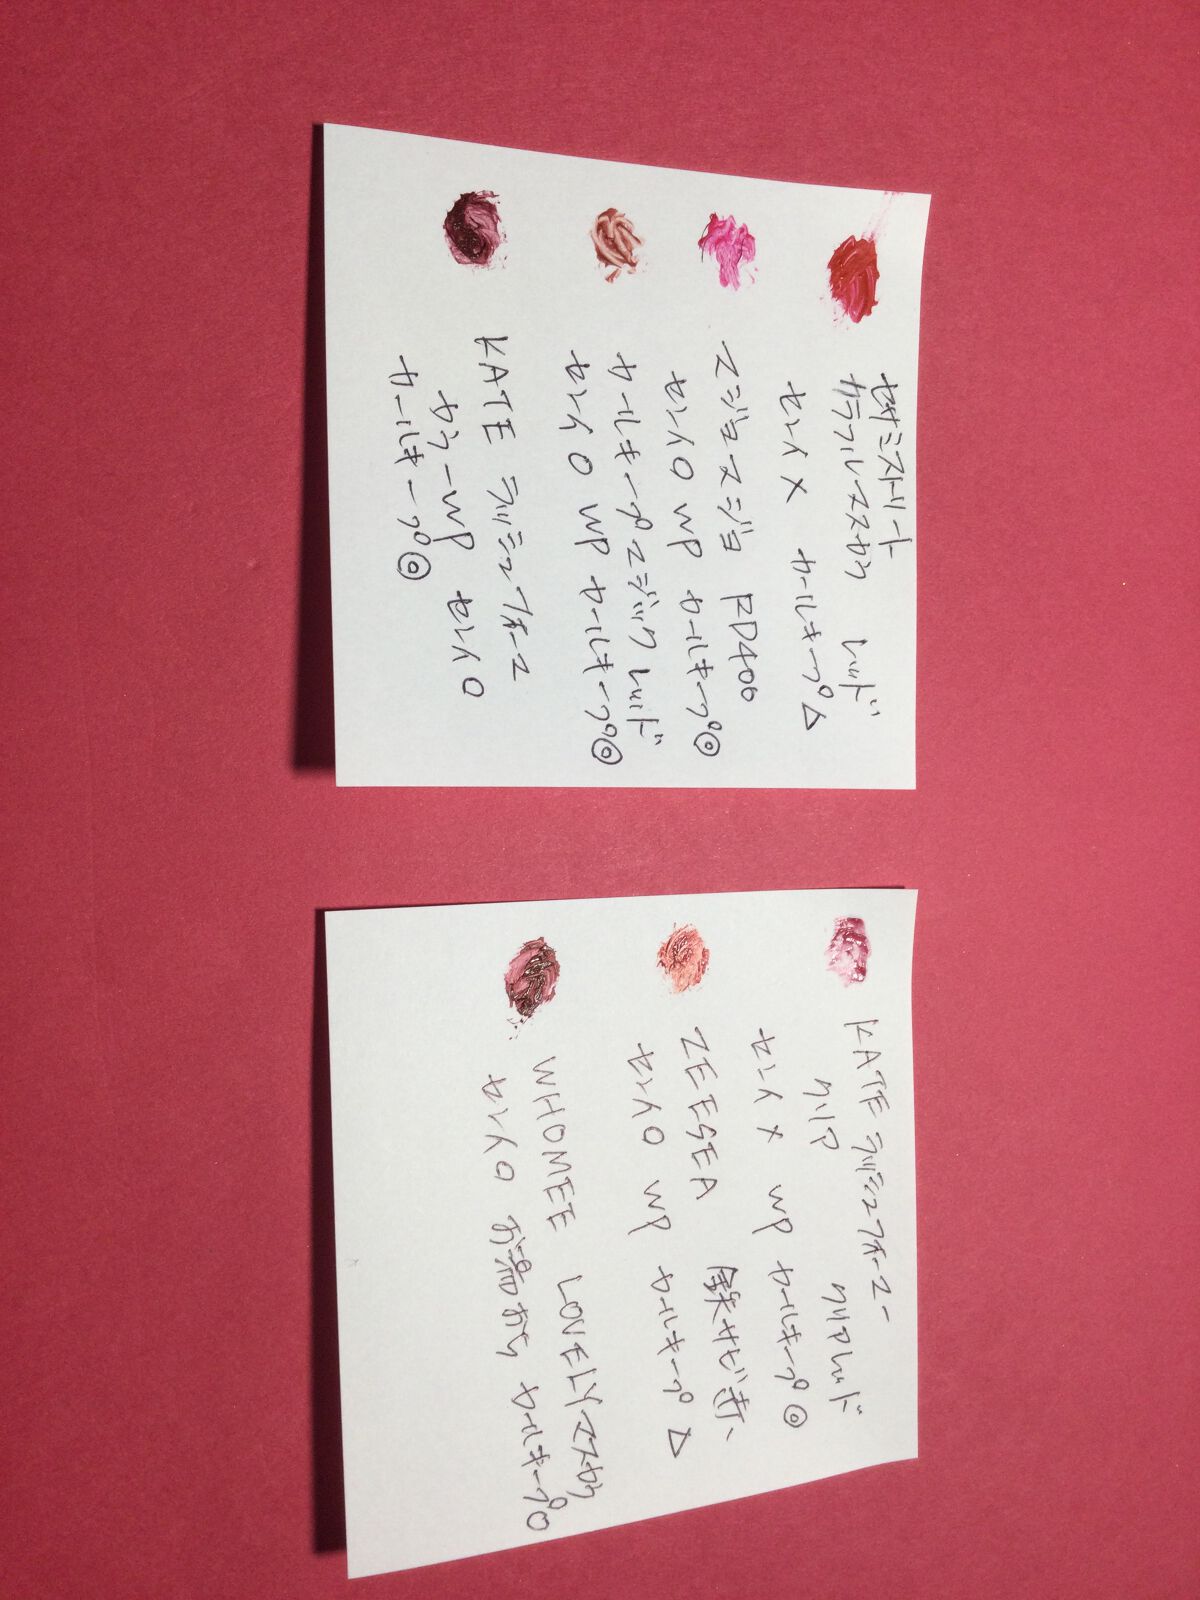 セサミストリート
カラフルマスカラ レッド
センイ× カールキープ△
マジョマジョ RD400
センイ○ WP カールキープ◎
カールキープマジック レッド
センイ○ WP カールキープ◎
KATE ラッシュフォーマ
カラーWP センイ○
カールキープ◎
KATE ラッシュフォーマー
クリア クリアレッド
センイ× WP カールキープ◎
ZEESEA 鉄サビ赤、
センイ○ WP カールキープ△
WHOMEE LOVELYマスカラ
センイ○ お湯おち カールキープ○